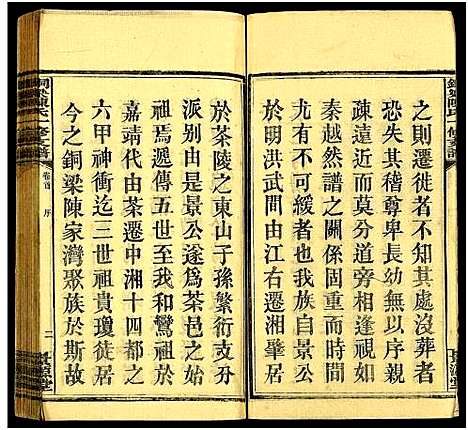 之則遷徙者不知其處沒葬者
恐失其稽尊卑長幼前後親
疎遠近而莫分道旁相逢視如
秦越然譜之關係固重而時間
有不可緩者也我祖景公
於明洪武間由江右遷湘肇居
於茶陵之東山子孫繁衍支分
派别由是景公遂爲茶邑之始
祖焉遞傳五世至我和鸞祖於
嘉靖代由茶遷中湘十四都之
六甲神衝迄三世祖貴瓊徒居
今之銅梁陳家灣聚族於斯故
銅梁陳氏一修支譜
卷首
序
二